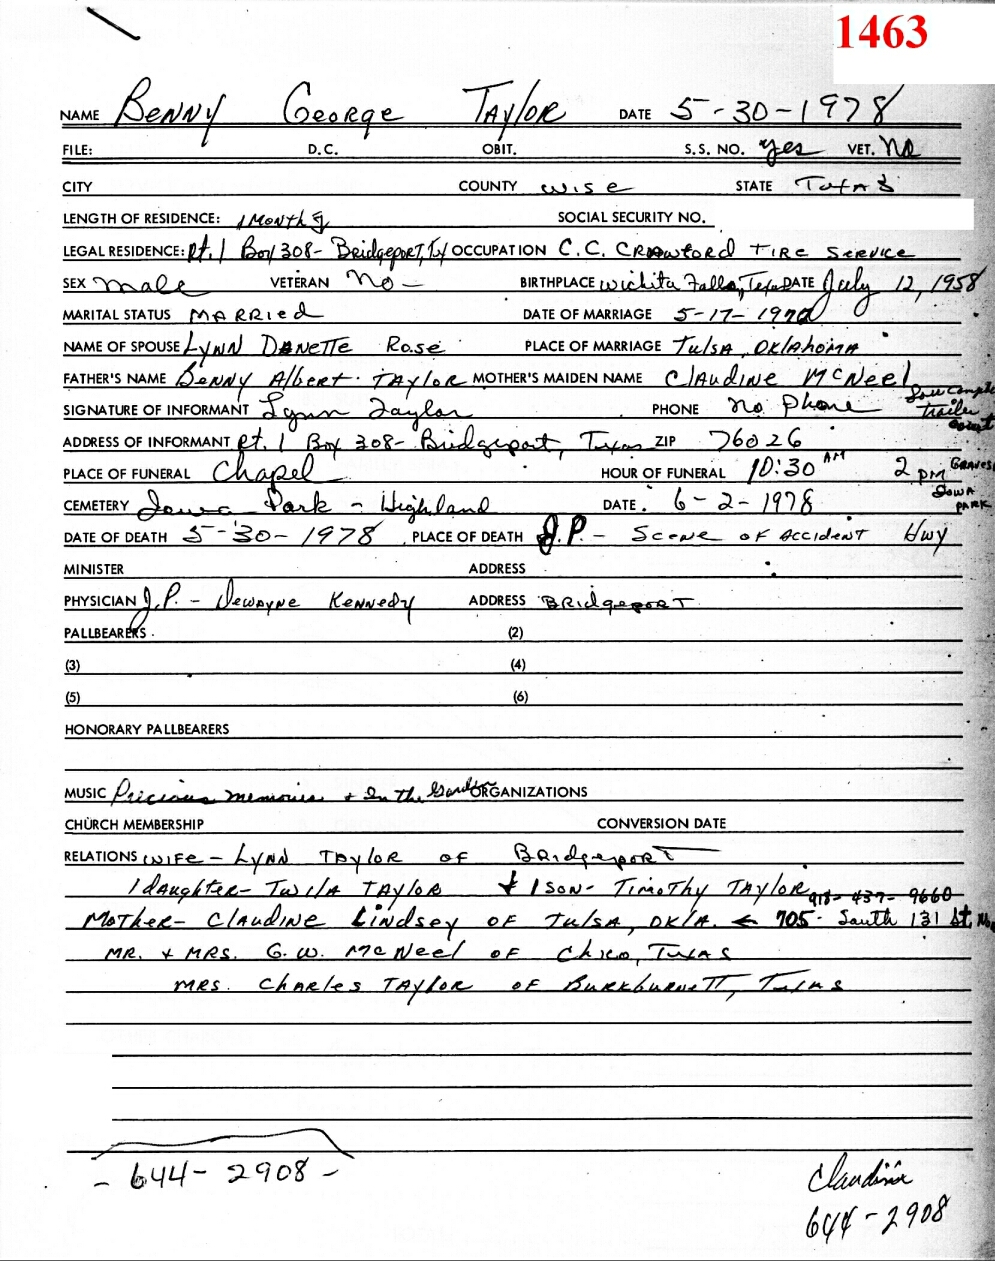 1463
NAME Benny George Taylor DATE 5-30-1978
FILE: D.C. OBIT. S.S. NO. yes VET. No
CITY COUNTY Wise STATE Texas
LENGTH OF RESIDENCE: 1 Month SOCIAL SECURITY NO.
LEGAL RESIDENCE: Rt. 1 Box 308- Bridgeport, Tx OCCUPATION C.C. Crawford Tire Service
SEX Male VETERAN No - BIRTHPLACE Wichita Falls, Texas DATE July 12, 1958
MARITAL STATUS Married DATE OF MARRIAGE 5-17-
NAME OF SPOUSE Lynn Danette Rose PLACE OF MARRIAGE Tulsa, Oklahoma
FATHER'S NAME Benny Albert Taylor MOTHER'S MAIDEN NAME Claudine McNeel
SIGNATURE OF INFORMANT Lynn Taylor PHONE No Phone trailer
ADDRESS OF INFORMANT Rt. 1 Box 308- Bridgeport, Texas ZIP 76026
PLACE OF FUNERAL Chapel HOUR OF FUNERAL 10:30 AM 2 PM
CEMETERY Iowa Park - Highland DATE. 6-2-1978 Iowa Park
DATE OF DEATH 5-30-1978 PLACE OF DEATH J.P. - Scene of Accident Hwy
MINISTER ADDRESS
PHYSICIAN J.P. - Dewayne Kennedy ADDRESS Bridgeport
PALLBEARERS (2)
(3) (4)
(5) (6)
HONORARY PALLBEARERS
MUSIC Precious Memories + In the Garden ORGANIZATIONS
CHURCH MEMBERSHIP CONVERSION DATE
RELATIONS Wife - Lynn Taylor of Bridgeport
1 daughter- Twila Taylor + 1 son- Timothy Taylor 918-437-9660
Mother- Claudine Lindsey of Tulsa, Okla. ← 705- South 131 St.
Mr. + Mrs. G.W. McNeel of Chico, Texas
Mrs. Charles Taylor of Burkburnett, Texas
- 644-2908 -
Claudine
644-2908